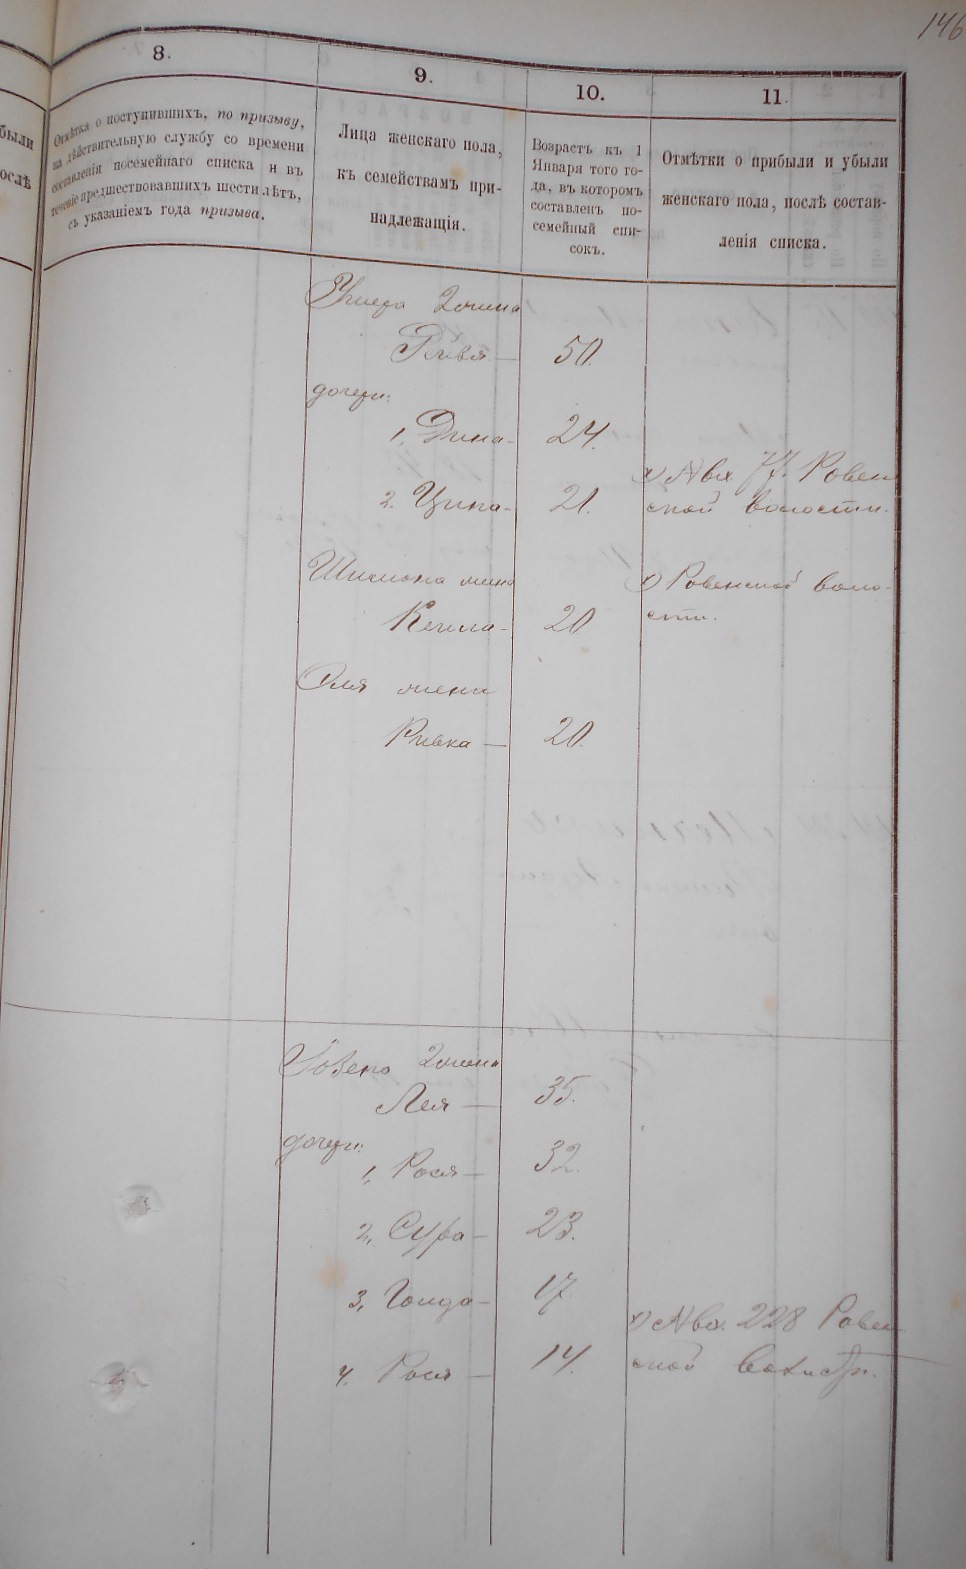 146
8.
9.
10.
11.
были
ослѣ
Отмѣтка о поступившихъ, по призыву,
на дѣйствительную службу со времени
составленія посемейнаго списка и въ
теченіе предшествовавшихъ шести лѣтъ,
съ указаніемъ года призыва.
Лица женскаго пола,
къ семействамъ при-
надлежащія.
Возрастъ къ 1
Января того го-
да, въ которомъ
составленъ по-
семейный спи-
сокъ.
Отмѣтки о прибыли и убыли
женскаго пола, послѣ состав-
ленія списка.
жена
Ривка — 50.
дочери:
1, Дина - 24.
2. Ципа - 21.
x) № вх 77. Ровен
ской волости.
Шимона жена
Кейла - 20
x) Ровенской воло-
сти.
жена
Ривка — 20.
жена
Лея — 35.
дочери:
1, Рося — 32.
2, Сура — 23.
3, Голда — 17.
4. Рося — 14.
x) № вх. 228 Ровен
ской